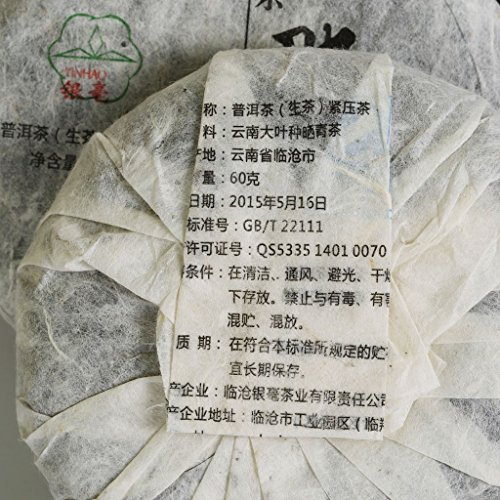 茶
YINHAO
银毫
普洱茶（生茶
净含量
称：普洱茶（生茶）紧压茶
料：云南大叶种晒青茶
产地：云南省临沧市
量：60克
日期：2015年5月16日
标准号：GB/T 22111
许可证号：QS5335 1401 0070
条件：在清洁、通风、避光、干燥
下存放。禁止与有毒、有害
混贮、混放。
质 期：在符合本标准所规定的贮
宜长期保存。
产企业：临沧银毫茶业有限责任公司
产企业地址：临沧市工业园区（临翔